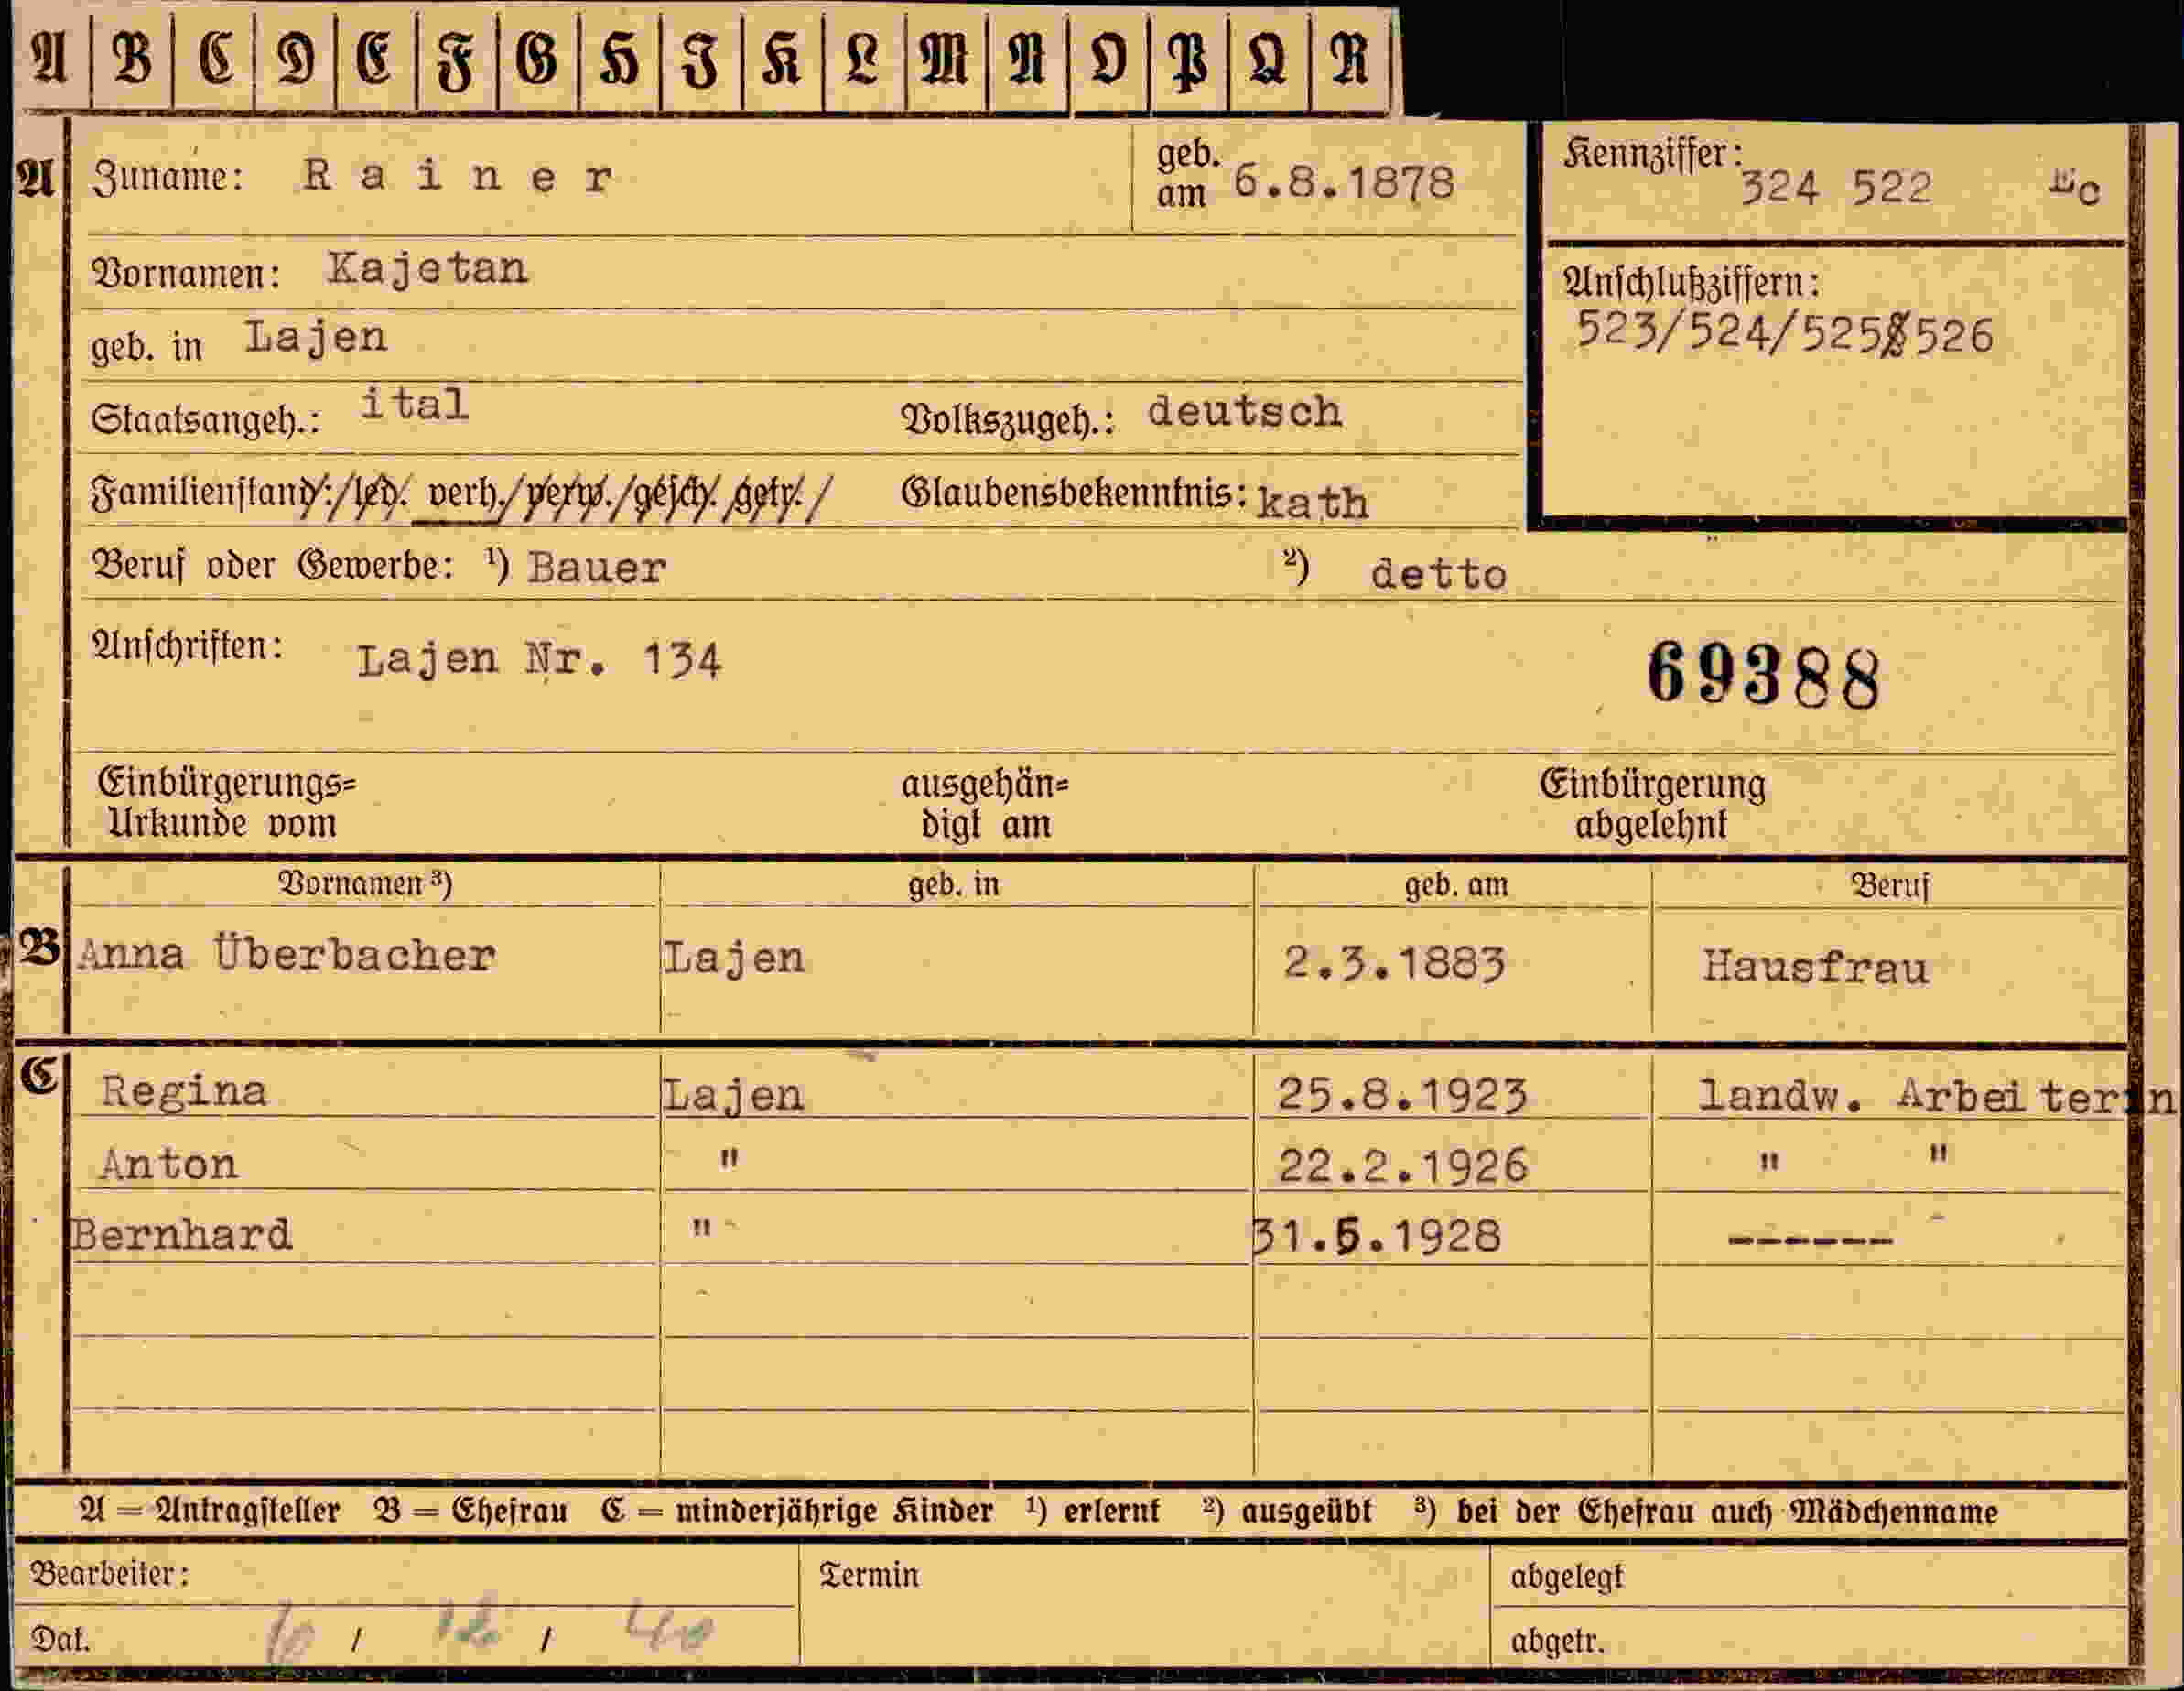 A B C D E F G H I K L M N O P Q R
A Zuname: Rainer geb. am 6.8.1878
Kennziffer: 324 522 Ec
Vornamen: Kajetan
Anschlußziffern:
523/524/525/526
geb. in Lajen
Staatsangeh.: ital Volkszugeh.: deutsch
Familienstand: / led. verh. / verw. / gesch. getr. / Glaubensbekenntnis: kath
Beruf oder Gewerbe: ¹) Bauer ²) detto
Anschriften: Lajen Nr. 134
69388
Einbürgerungs= ausgehän= Einbürgerung
Urkunde vom digt am abgelehnt
Vornamen ³) geb. in geb. am Beruf
B Anna Überbacher Lajen 2.3.1883 Hausfrau
C Regina Lajen 25.8.1923 landw. Arbeiterin
Anton " 22.2.1926 " "
Bernhard " 31.5.1928 ------
A = Antragsteller B = Ehefrau C = minderjährige Kinder ¹) erlernt ²) ausgeübt ³) bei der Ehefrau auch Mädchenname
Bearbeiter: Termin abgelegt
Dat. / 12 / 40 abgetr.